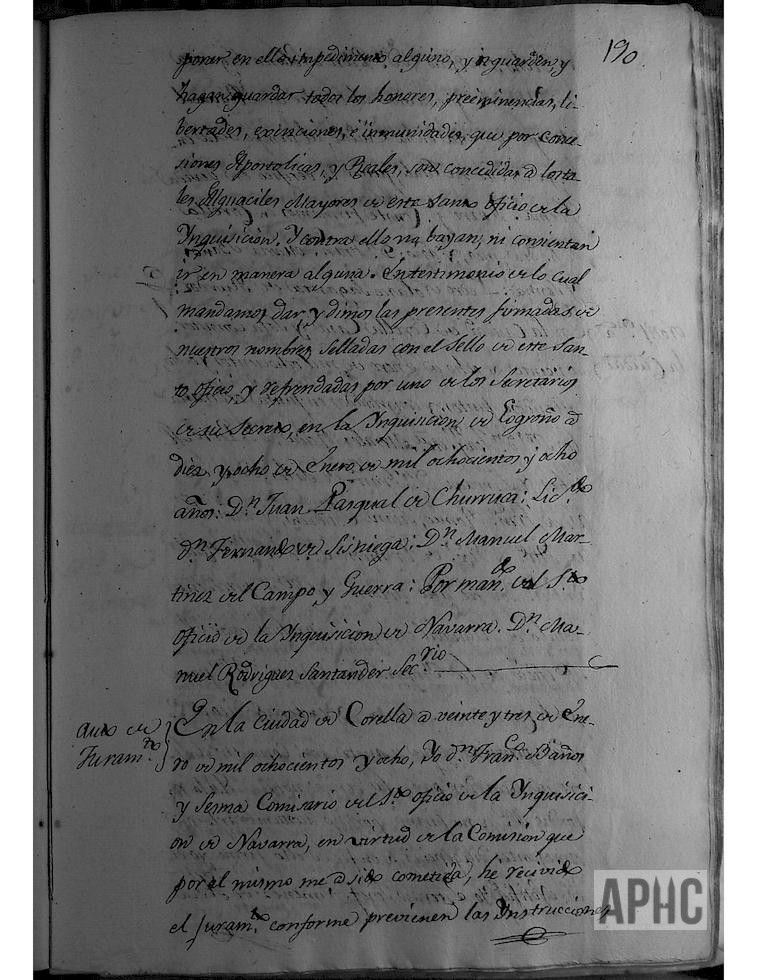 190
poner en ella impedimento alguno, y os guarden, y
hagan guardar todos los honores, preeminencias, li-
bertades, exenciones, é inmunidades, que por conce-
siones Apostolicas, y Reales, son concedidas á los ta-
les Alguaciles Mayores de este Santo oficio de la
Ynquisicion. Y contra ello no bayan, ni consientan
ir en manera alguna. En testimonio de lo cual
mandamos dar, y dimos las presentes firmadas de
nuestros nombres, selladas con el sello de este San-
to oficio, y refrendadas por uno de los Secretarios
de su Secreto, en la Ynquisicion de Logroño á
diez y ocho de Enero de mil ochocientos y ocho
años: Dn Juan Pasqual de Churruca: Licdo
dn Fernando de Sisniega: Dn Manuel Mar-
tinez del Campo y Guerra: Por mando del Sto
oficio de la Ynquisicion de Navarra. Dn Ma-
nuel Rodriguez Santander Secrio
auto de
Juramto
En la Ciudad de Corella á veinte y tres de Ene-
ro de mil ochocientos y ocho, Yo dn Franco Baños
y Sesma Comisario del Sto oficio de la Ynquisici-
on de Navarra, en virtud de la Comision que
por el mismo me á sido cometida, he recivido
el Juramto conforme previenen las Ynstrucciones
APHC